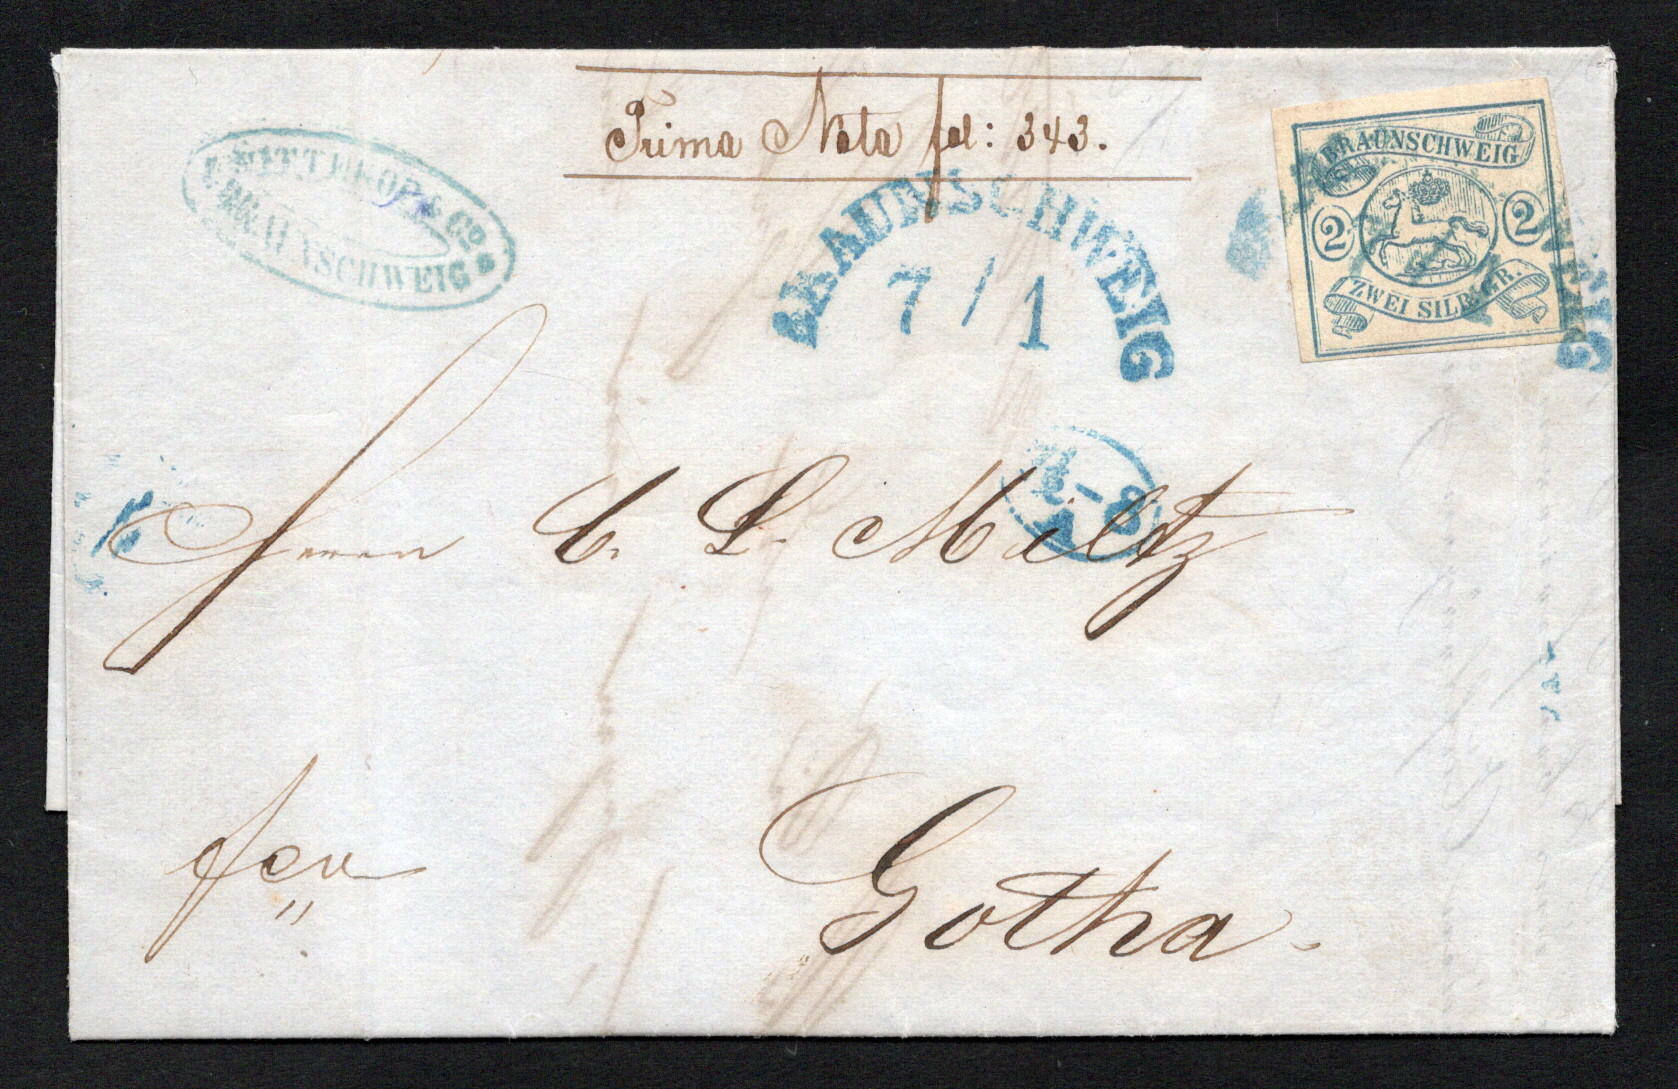 Prima Nota fol: 343.
& Co.
BRAUNSCHWEIG
BRAUNSCHWEIG
7/1
BRAUNSCHWEIG
2 2
ZWEI SILB. GR.
Herrn C. L. Miltz
fco
Gotha.